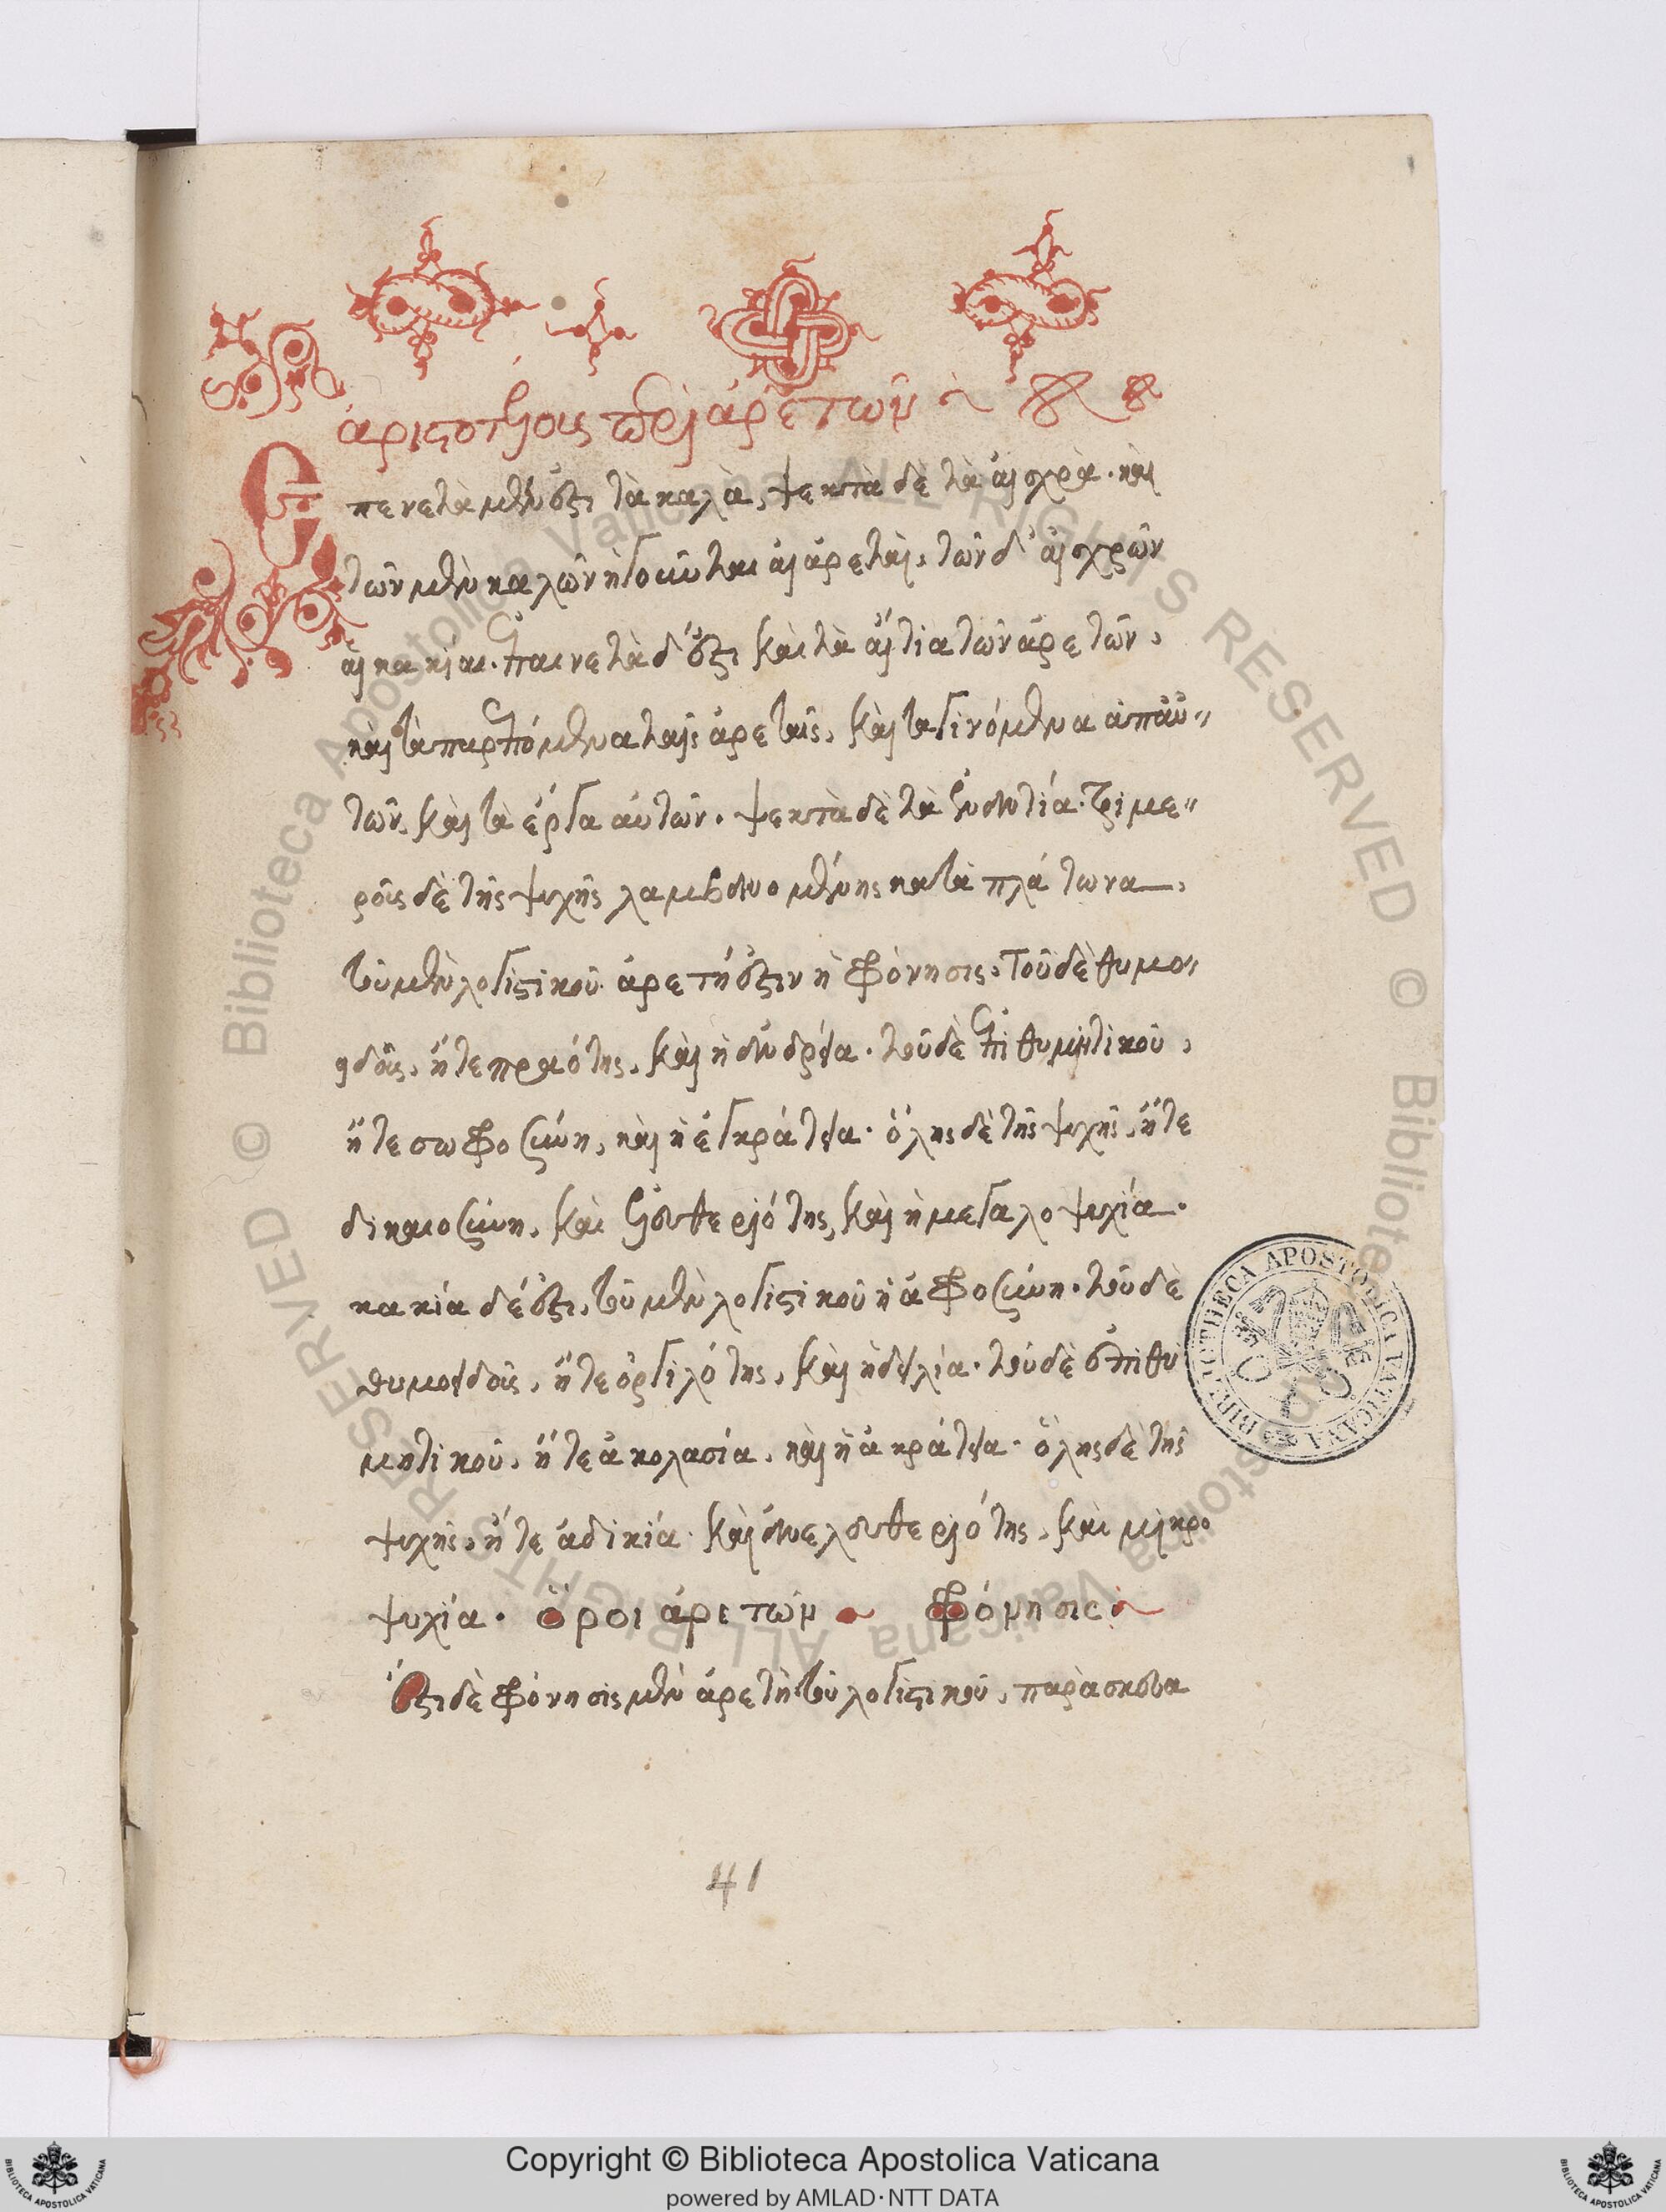 ἀριστοτέλους περὶ ἀρετῶν
Ἐπενετὰ μέν ἐστι τὰ καλὰ, ψεκτὰ δὲ τὰ αἰσχρὰ. καὶ
τῶν μὲν καλῶν ἡγοῦνται αἱ ἀρεταὶ, τῶν δ' αἰσχρῶν
αἱ κακίαι. ἐπαινετὰ δ' ἐστὶ καὶ τὰ αἴτια τῶν ἀρετῶν,
καὶ τὰ παρεπόμενα ταῖς ἀρεταῖς, καὶ τὰ γινόμενα ἀπ' αὐ-
τῶν, καὶ τὰ ἔργα αὐτῶν. ψεκτὰ δὲ τὰ ἐναντία. τριμε-
ροῦς δὲ τῆς ψυχῆς λαμβανομένης κατὰ πλάτωνα,
τοῦ μὲν λογιστικοῦ ἀρετή ἐστιν ἡ φρόνησις. τοῦ δὲ θυμο-
ειδοῦς, ἥ τε πραότης, καὶ ἡ ἀνδρεία. τοῦ δὲ ἐπιθυμητικοῦ,
ἥ τε σωφροσύνη, καὶ ἡ ἐγκράτεια. ὅλης δὲ τῆς ψυχῆς, ἥ τε
δικαιοσύνη, καὶ ἐλευθεριότης, καὶ ἡ μεγαλοψυχία.
κακία δέ ἐστι, τοῦ μὲν λογιστικοῦ ἡ ἀφροσύνη. τοῦ δὲ
θυμοειδοῦς, ἥ τε ὀργιλότης, καὶ ἡ δειλία. τοῦ δὲ ἐπιθυ
μητικοῦ, ἥ τε ἀκολασία, καὶ ἡ ἀκράτεια. ὅλης δὲ τῆς
ψυχῆς, ἥ τε ἀδικία. καὶ ἀνελευθεριότης, καὶ μικρο
ψυχία. ὅροι ἀρετῶν φρόνησις
Ἔστι δὲ φρόνησις μὲν ἀρετὴ τοῦ λογιστικοῦ, παρασκευα
41
BIBLIOTHECA APOSTOLICA VATICANA
© Biblioteca Apostolica Vaticana ALL RIGHTS RESERVED © Biblioteca Apostolica Vaticana ALL RIGHTS RESERVED
BIBLIOTECA APOSTOLICA VATICANA
Copyright © Biblioteca Apostolica Vaticana
powered by AMLAD·NTT DATA
BIBLIOTECA APOSTOLICA VATICANA